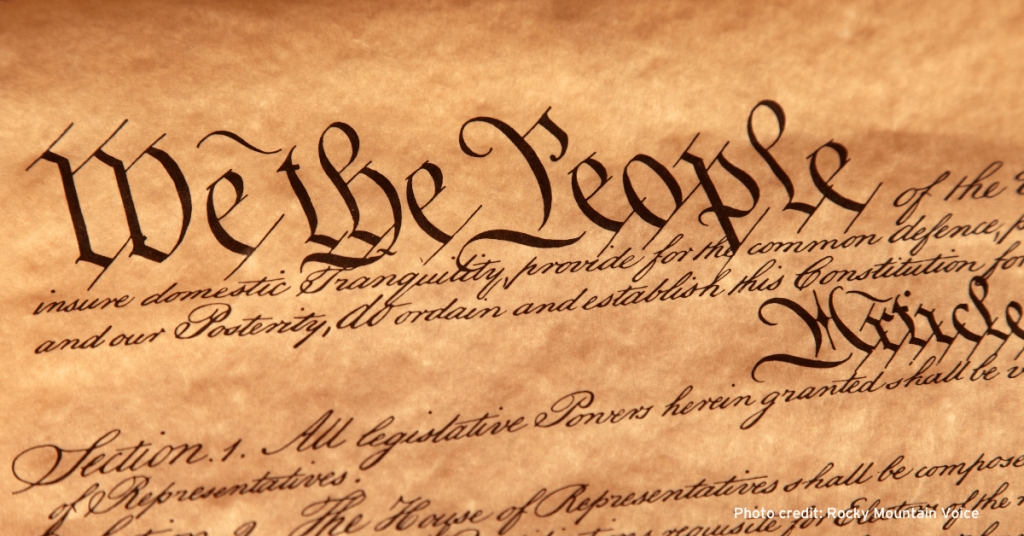 We the People of the
insure domestic Tranquility, provide for the common defence,
and our Posterity, do ordain and establish this Constitution for
Article
Section. 1. All legislative Powers herein granted shall be
of Representatives.
The House of Representatives shall be compose
requisite for Electors of the
Photo credit: Rocky Mountain Voice